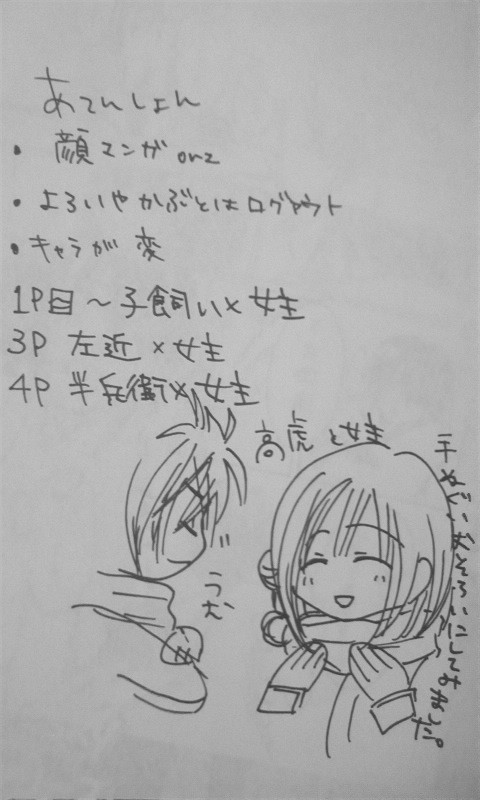 あてんしょん
・顔マンガorz
・よろいやかぶとはログアウト
・キャラが変
1P目～子飼い×女主
3P 左近×女主
4P 半兵衛×女主
高虎と女主
うむ
おそろいにしてみました。